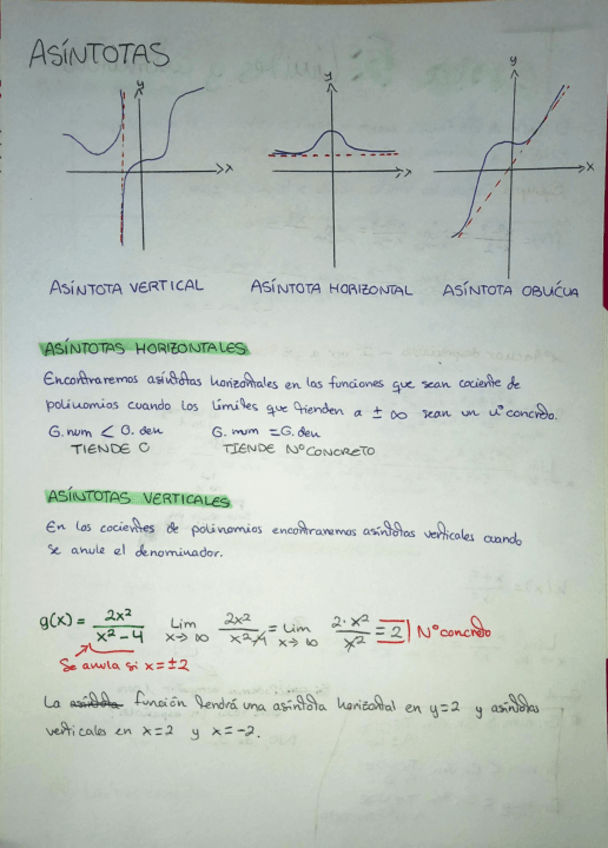 ASÍNTOTAS
y
x
y
x
y
x
ASÍNTOTA VERTICAL
ASÍNTOTA HORIZONTAL
ASÍNTOTA OBLICUA
ASÍNTOTAS HORIZONTALES
Encontraremos asíntotas horizontales en las funciones que sean cociente de
polinomios cuando los límites que tienden a ± ∞ sean un nº concreto.
G. num < G. den G. num = G. den
TIENDE 0 TIENDE Nº CONCRETO
ASÍNTOTAS VERTICALES
En los cocientes de polinomios encontraremos asíntotas verticales cuando
se anule el denominador.
g(x) = 2x²/(x² - 4) Lim x→∞ 2x²/(x² - 4) = Lim x→∞ 2·x²/x² = 2 Nº concreto
Se anula si x = ±2
La asíntota función tendrá una asíntota horizontal en y = 2 y asíntotas
verticales en x = 2 y x = -2.